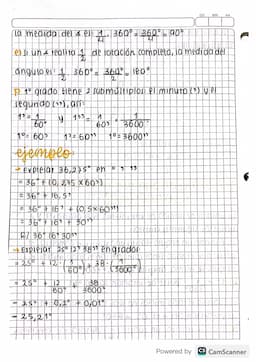 la medida del ∢ es: 1/4 360° = 360°/4 = 90°
e) si un ∢ realita 1/2 de rotación completa, la medida del
ángulo es: 1/2 360° = 360°/2 = 180°
1° grado tiene 2 submúltiplos: el minuto (') y el
segundo (''), así:
1' = 1/60° y 1'' = 1/60' = 1/3600°
1° = 60' 1' = 60'' 1° = 3600''
ejemplo
→ expresar 36,275° en ° ' ''
= 36° + (0,275 x 60')
= 36° + 16,5'
= 36° + 16' + (0,5 x 60'')
= 36° + 16' + 30''
R/ 36° 16' 30''
→ Expresar 25° 12' 38'' en grados
= 25° + 12 · (1/60°) + 38 · (1/3600°)
= 25° + 12/60° + 38/3600°
= 25° + 0,2° + 0,01°
= 25,21°
Powered by CS CamScanner